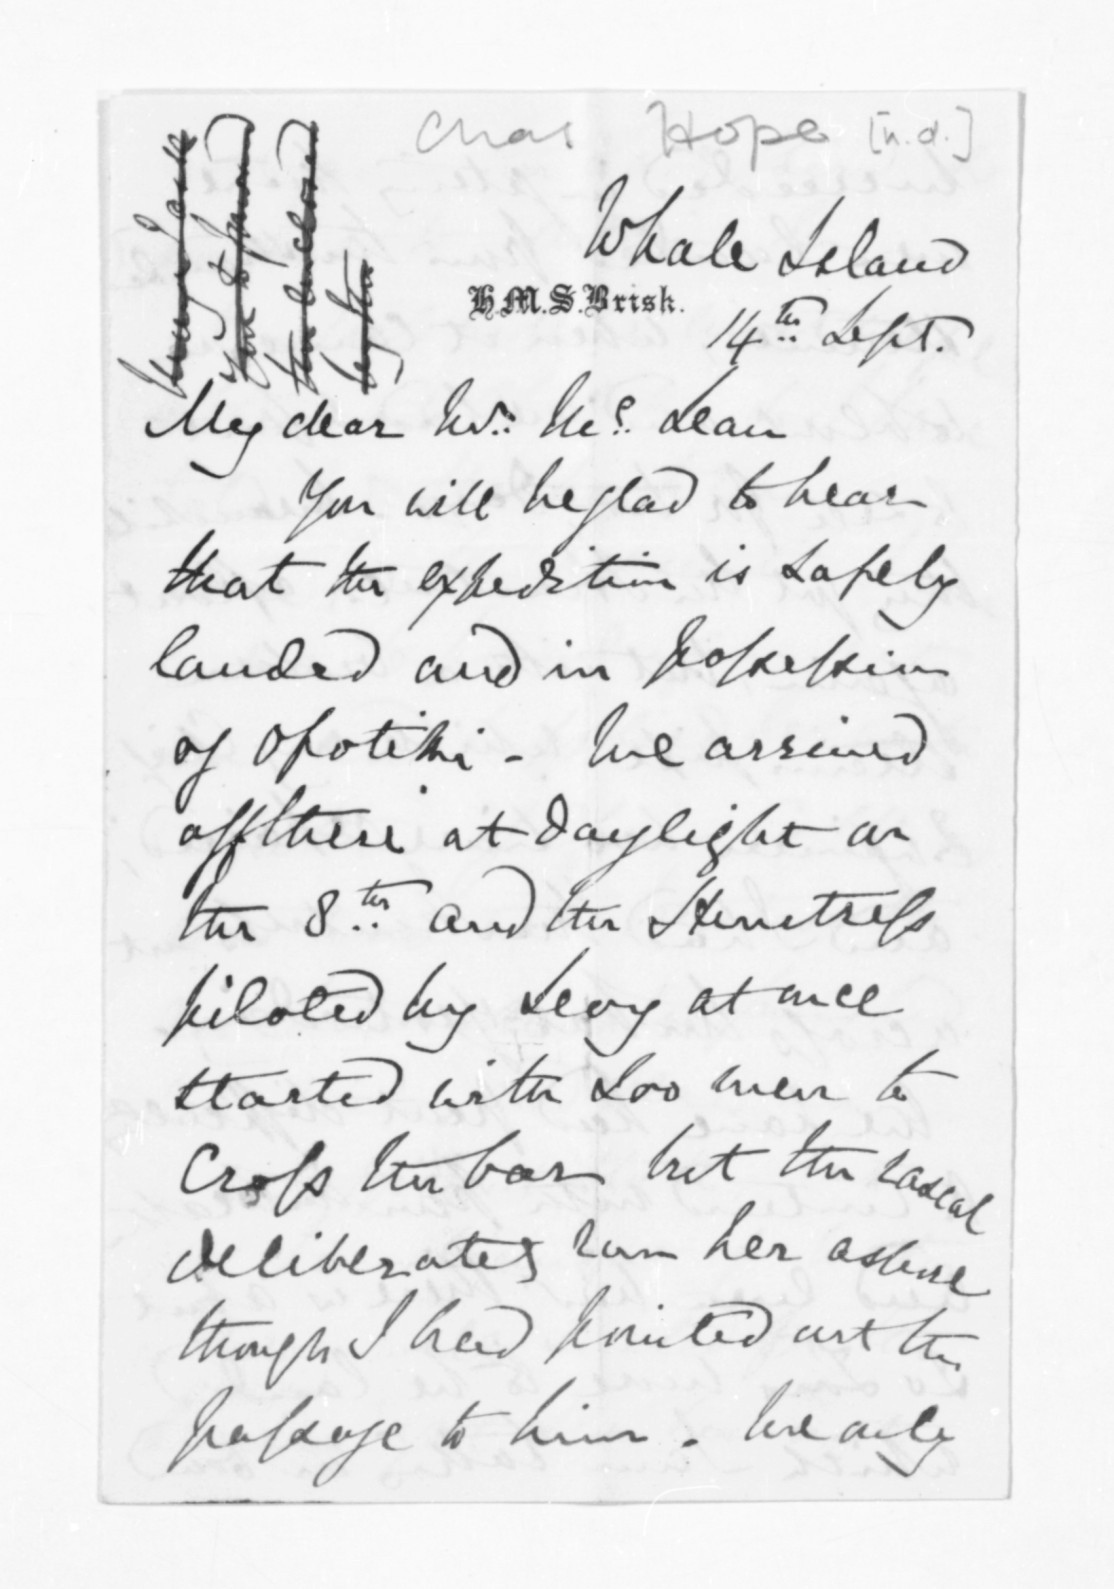 Chas Hope [n.d.]
Whale Island
H.M.S. Brisk.
14th Sept.
My dear Mr. Mc. Lean
You will be glad to hear
that the expedition is safely
landed and in possession
of Opotiki - We arrived
off there at daylight on
the 8th and the Huntress
piloted by Levy at once
started with 200 men to
cross the bar but the rascal
deliberately ran her ashore
though I had pointed out the
passage to him. We only